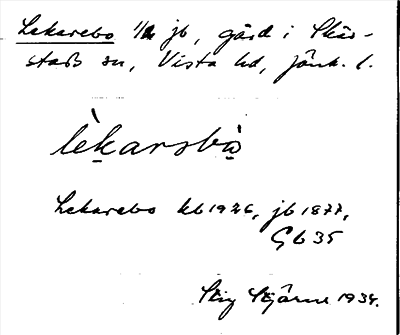 Lekarebo 1/2 jb, gård i Skär-
stads sn, Vista hd, Jönk. l.
lèkarsbò̤
Lekarebo kb 1926, jb 1877,
Gb 35
Stig Stjärne 1934.